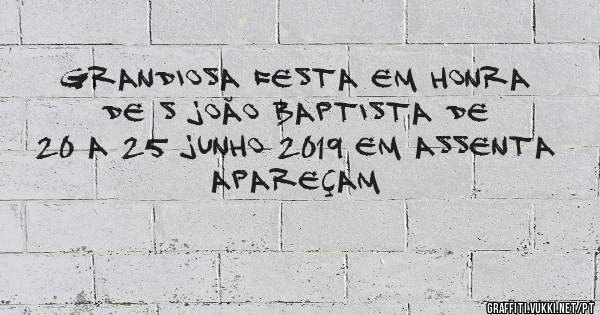 GRANDIOSA FESTA EM HONRA
DE S JOÃO BAPTISTA DE
20 A 25 JUNHO 2019 EM ASSENTA
APAREÇAM
GRAFFITI.VUKKI.NET/PT